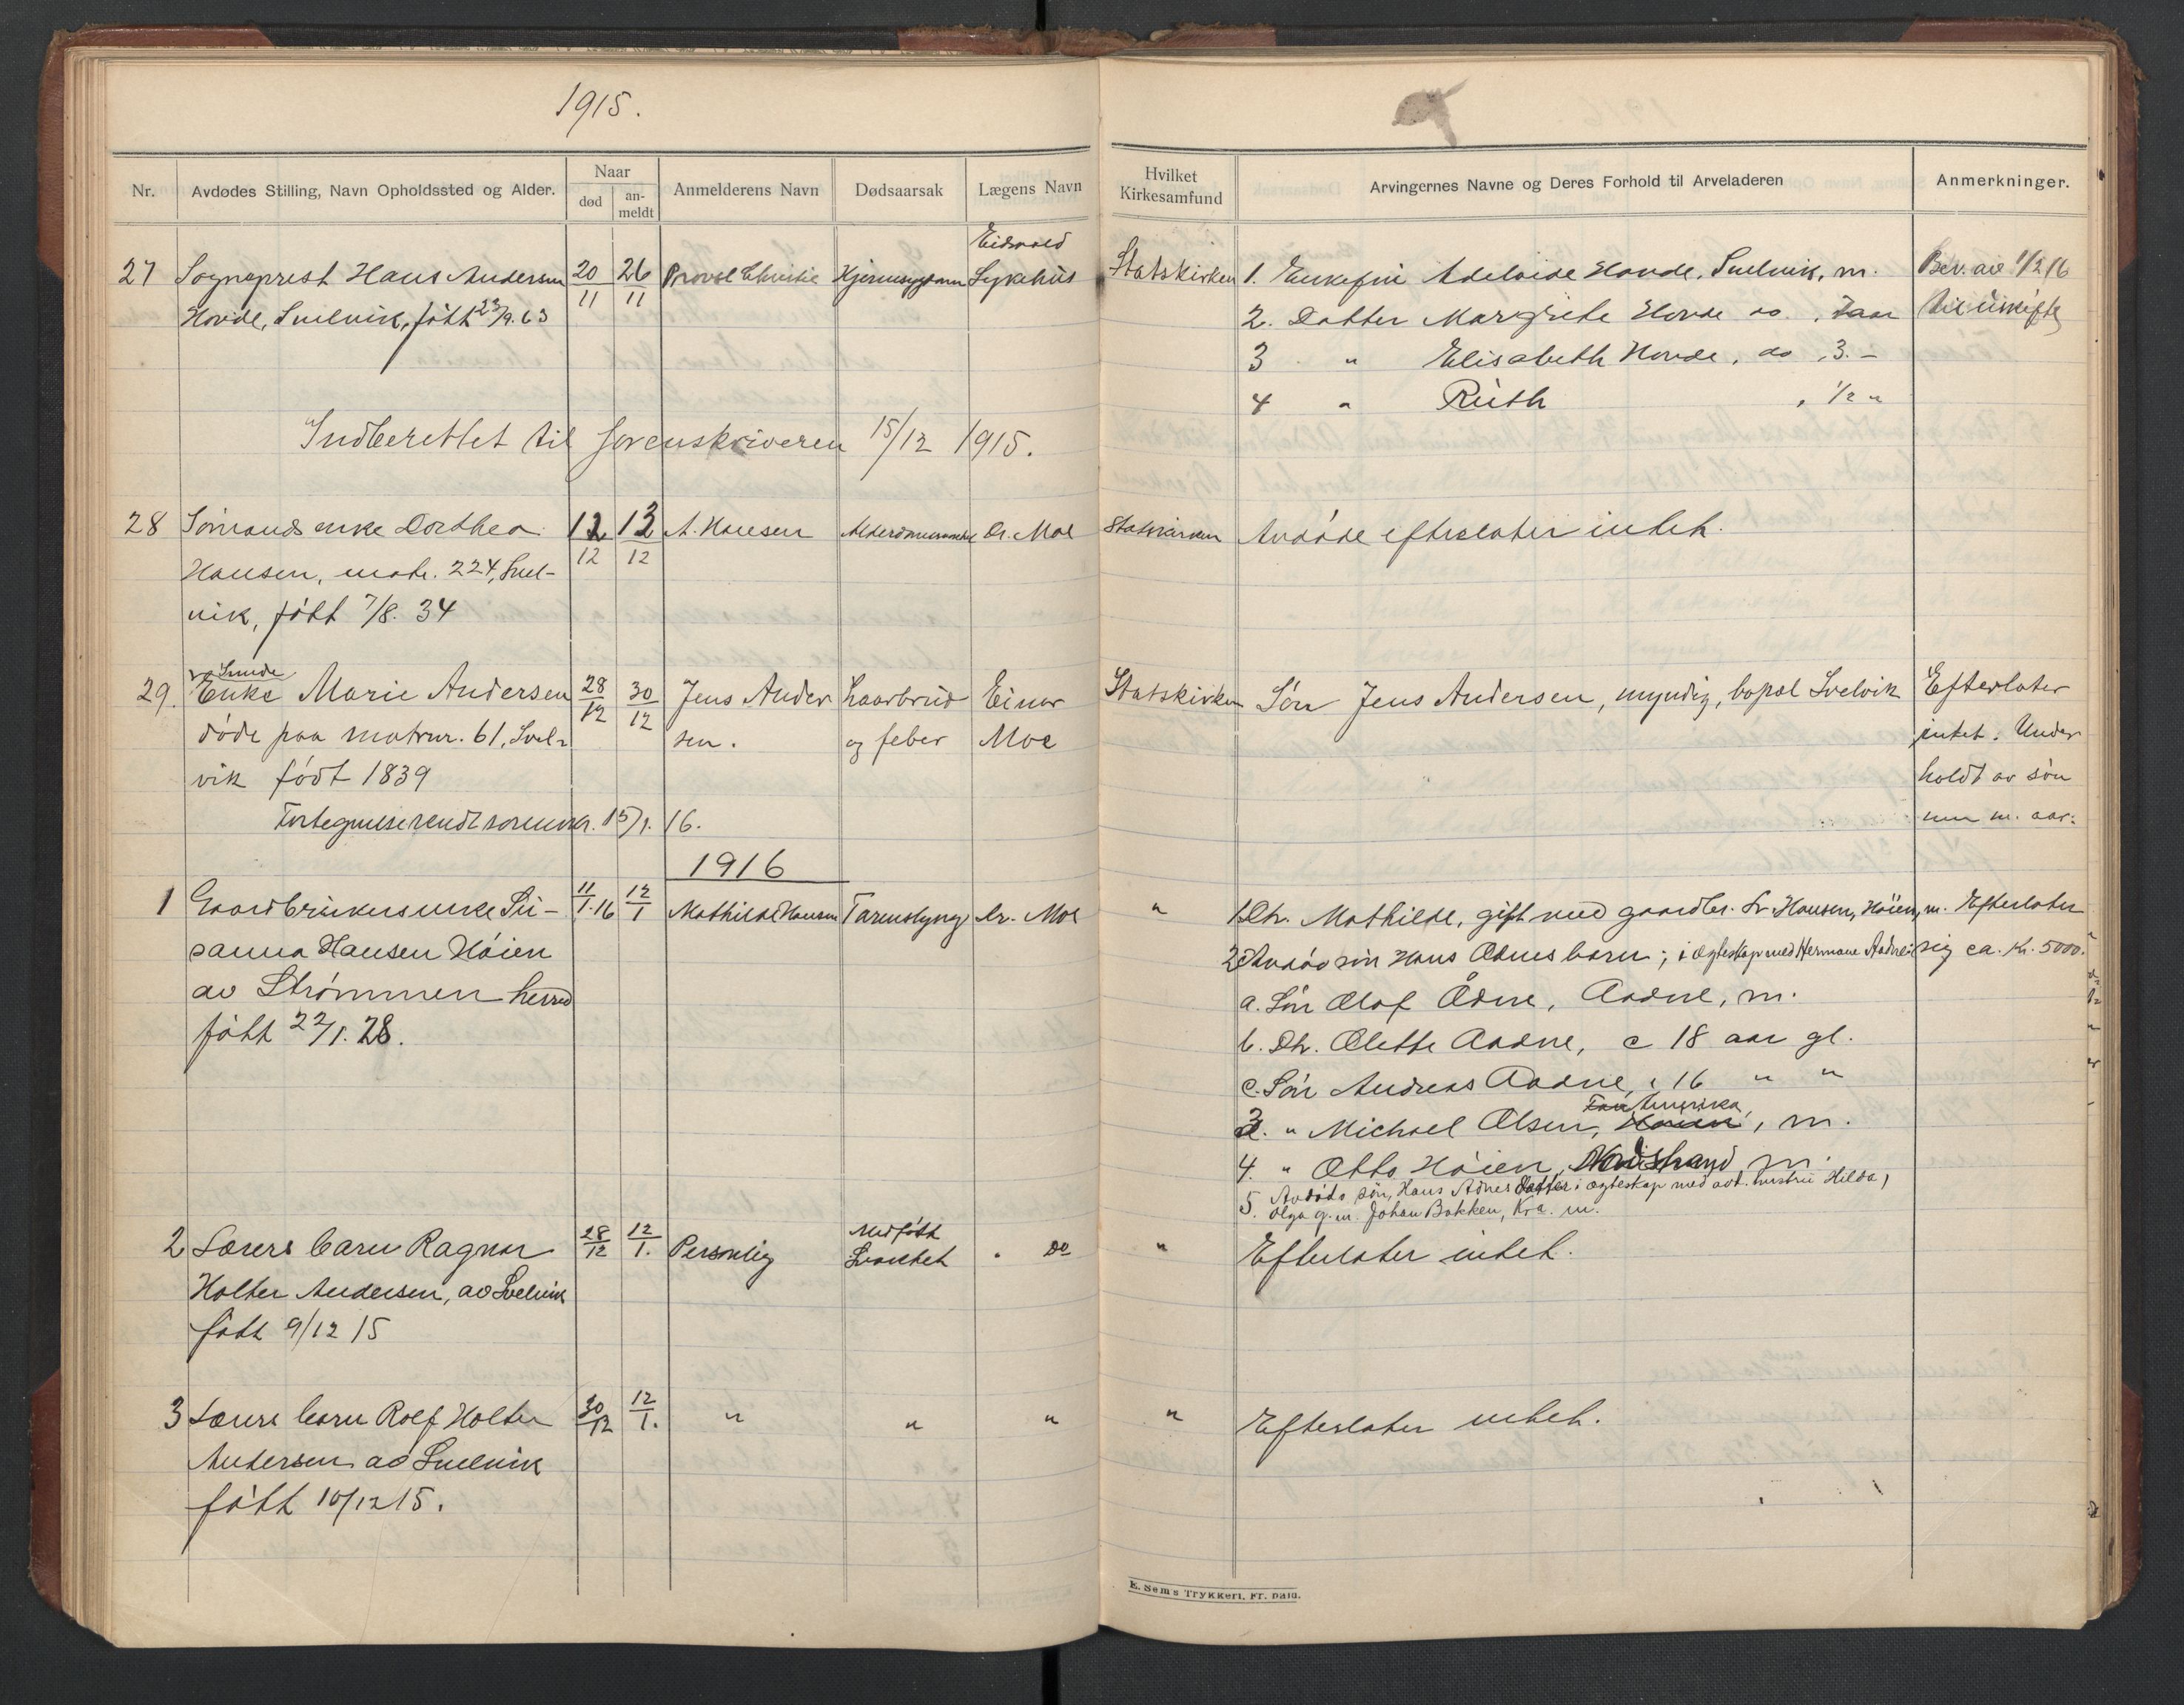 1915.
Nr.
Avdødes Stilling, Navn Opholdssted og Alder.
Naar
død
an-
meldt
Anmelderens Navn
Dødsaarsak
Lægens Navn
Hvilket
Kirkesamfund
Arvingernes Navne og Deres Forhold til Arveladeren
Anmerkninger.
27 Sogneprest Hans Andersen 20/11 26/11 Provst Christie Hjernesygdom Eidsvold Sykehus
Hovde, Svelvik, født 23/9.63
Statskirken 1. Enkefru Adelaide Hovde, Svelvik, m. Bev. av 1/2 16
2. Datter Margrete Hovde do. , 7 aar til uskifte
3 " Elisabeth Hovde, do , 3. -
4 " Ruth , 1/2 "
Indberettet til sorenskriveren 15/12 1915.
28 Sømands enke Dorthea 12/12 13/12 A. Hansen Dr. Moe
Hansen, matr. 224, Svel-
vik, født 7/8. 34
Statskirken Avdøde efterlater intet.
Smede
29. Enke Marie Andersen 28/12 30/12 Jens Ander Laarbrud Einar
døde paa matrnr. 61, Svel- sen. og feber Moe
vik født 1839
Statskirken Søn Jens Andersen, myndig, bopæl Svelvik Efterlater
intet. Under
holdt av søn
nen m. aar.
Fortegnelse sendt sorenskr. 15/1. 16.
1916
1 Gaardbrukerenke Su- 11/1.16 12/1 Mathilde Hansen Tarmslyng Dr. Moe
sanna Hansen Høien
av Strømmen herred
født 22/1. 28.
" 1 Dtr. Mathilde, gift med gaardbr. Fr. Hansen, Høien, m. Efterlater
2 Avdød søn Hans Ødnes barn; i egteskap med Hermane Aadne: sig ca. kr. 5000.
a. Søn Olaf Ådne, Aadne, m.
b. Dtr. Olette Aadne, c 18 aar gl.
c. Søn Andreas Aadne, c 16 " "
Amerika,
3. " Michael Olsen, Høien, m.
4. " Otto Høien, Nordstrand m.
5. Avdøde søn, Hans Adnes datter i egteskap med avd. hustru Hilda,
Olga g. m. Johan Bakken, Kra. m.
2 Lærers barn Ragnar 28/12 12/1. Personlig Medfødt Svakhet " Do
Holter Andersen, av Svelvik
født 9/12 15
" Efterlater intet.
3 Lærers barn Rolf Holter 30/12 12/1. " " "
Andersen av Svelvik
født 10/12 15.
" Efterlater intet.
E. Sem's Trykkeri, Fr. hald.